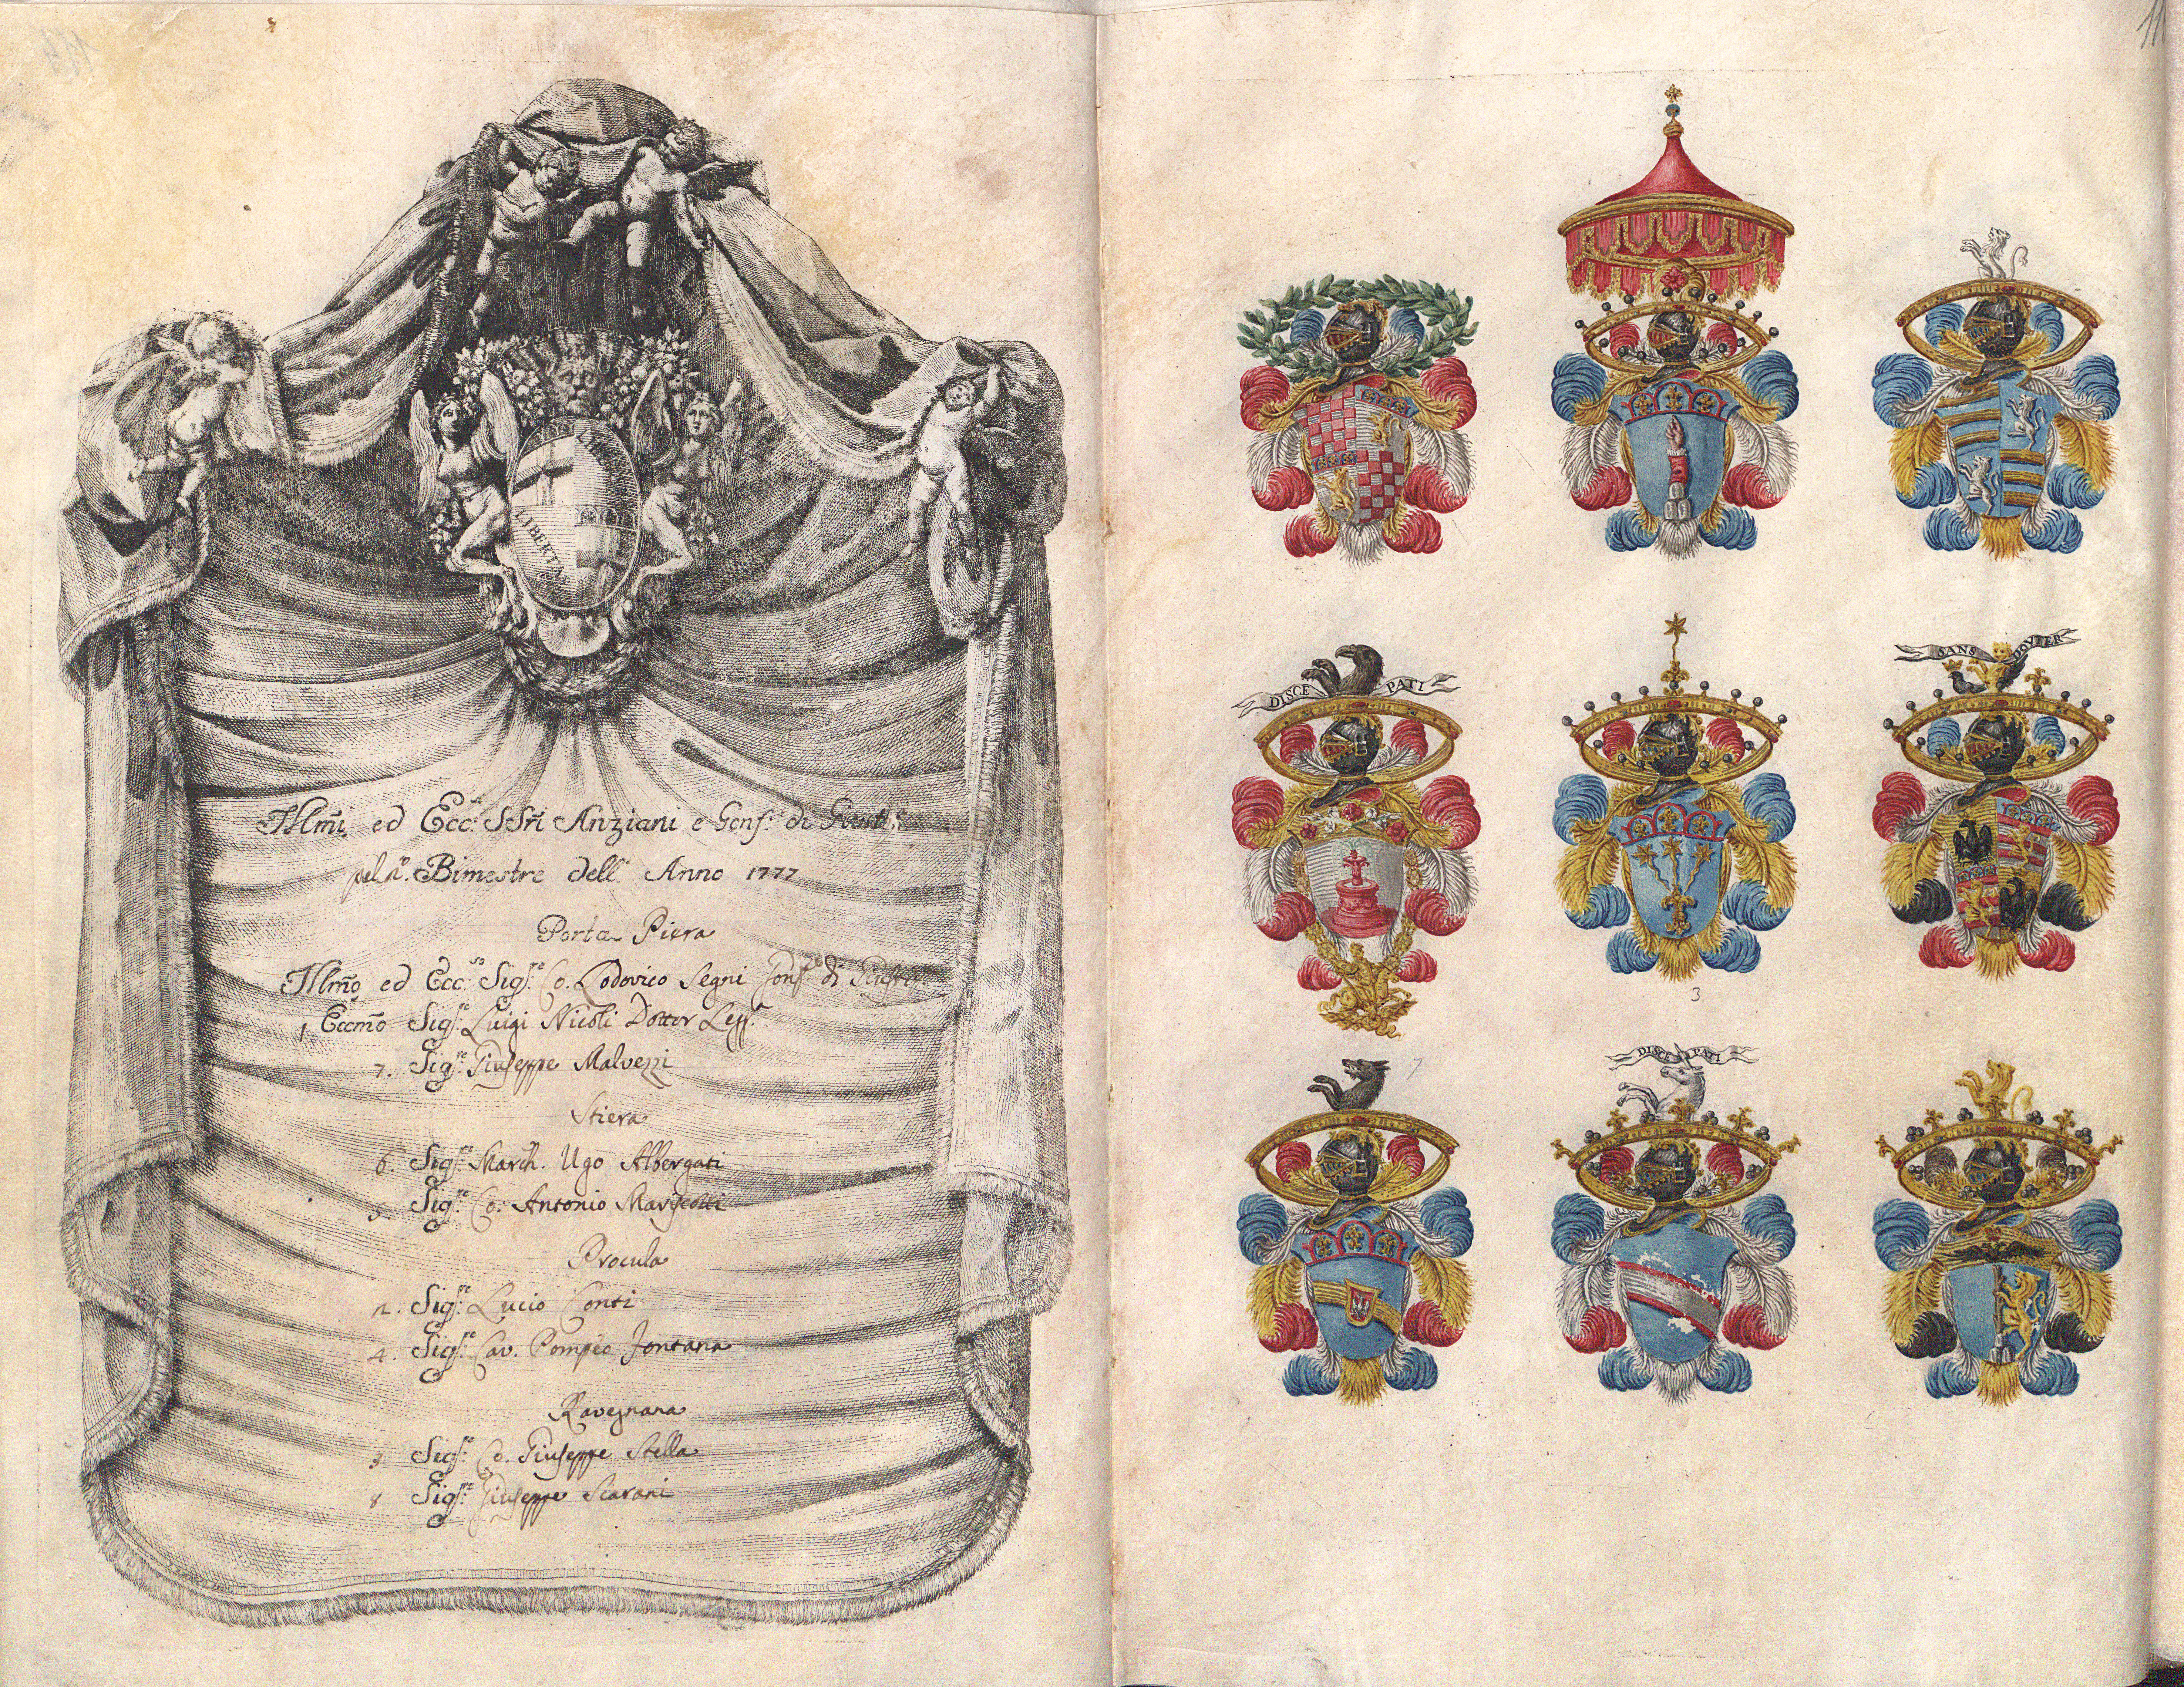 LIBERTAS
Illm̃i ed Ecc.si SSri Anziani e Gonf.e di Giust.
pel 2.o Bimestre dell' Anno 1777
Porta Piera
Illm̃o ed Ecc.so Sig.re Co. Lodovico Segni Gonf.e di Giust.
1. Eccm̃o Sig.re Luigi Nicoli Dottor Legg.
7. Sig.re Giuseppe Malvezzi
Stiera
6. Sig.re March. Ugo Albergati
5. Sig.re Co. Antonio Mariscotti
Procula
2. Sig.re Lucio Conti
4. Sig.re Cav. Pompeo Fontana
Ravegnana
3 Sig.re Co. Giuseppe Stella
8 Sig.re Giuseppe Scarani
DISCE PATI
SANS DOVTER
3
7
DISCE PATI